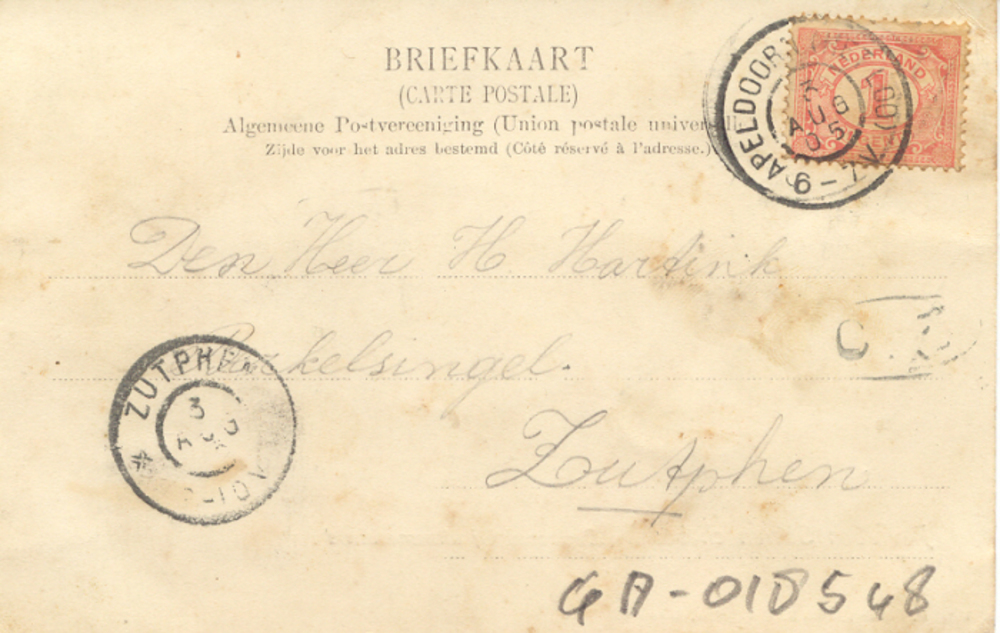 BRIEFKAART
(CARTE POSTALE)
Algemeene Postvereeniging (Union postale universelle
Zijde voor het adres bestemd (Côté réservé à l'adresse.)
NEDERLAND
1
APELDOORN
AUG
05
6-7V
Den Heer H Hartink
Berkelsingel.
Zutphen
ZUTPHEN
3
AUG
GA-018548